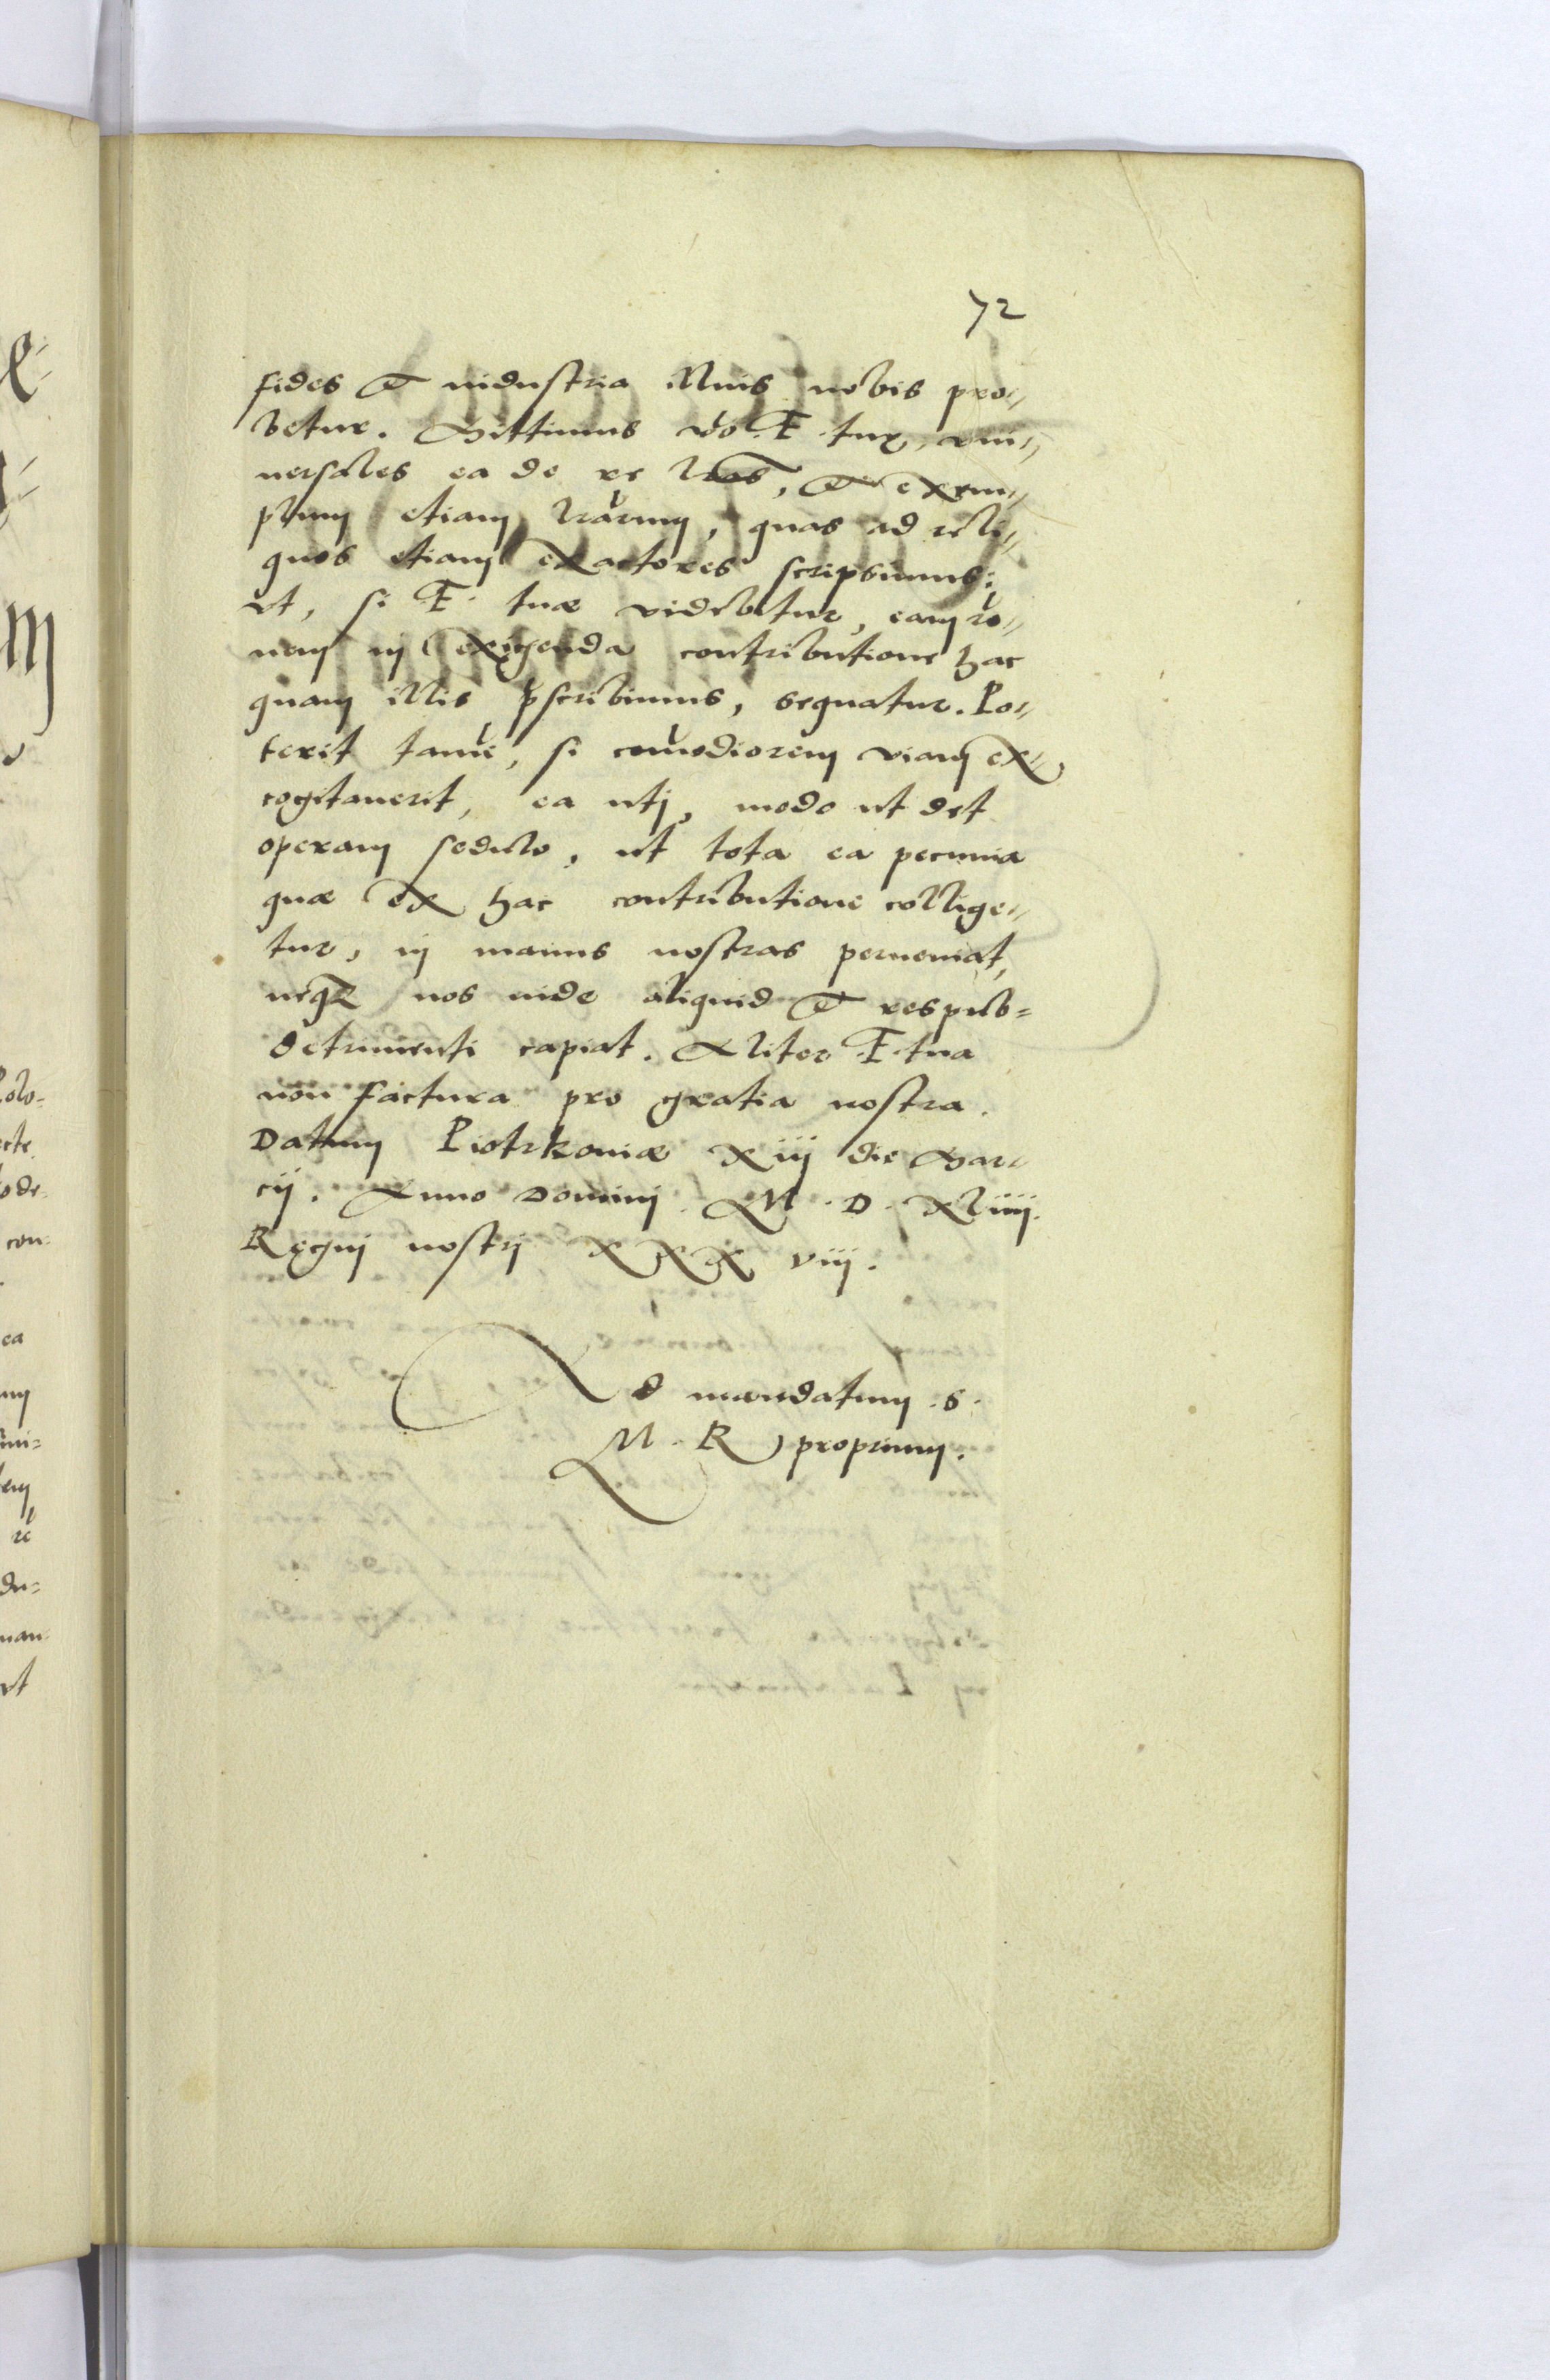 72
fides et industria illius nobis pro„
betur. Mittimus vō F. tuę, vni„
uersales ea de re lr̄as, et exem„
plum etiam lr̄arum, quas ad reli„
quos etiam exactores scripsimus:
vt, si F. tuæ videbitur, eam ro„
nem in exigenda contributione hac
quam illis p̄scribimus, sequatur. Po„
terit tamē, si com̄odiorem viam ex„
cogitauerit, ea utj, modo ut det
operam sedulo, ut tota ea pecunia
quæ ex hac contributione collige„
tur, in manus nostras perueniat,
neqꝫ nos inde aliquid et respub=
detrimenti capiat. Aliter F. tua
non factura pro gratia nostra.
Datum Piotrkouiæ Xiij die Mar„
cij. Anno Dominj. M. D. Xliiij.
Regnj nostrj XXX viij.
Ad mandatum .S.
M. R proprium.